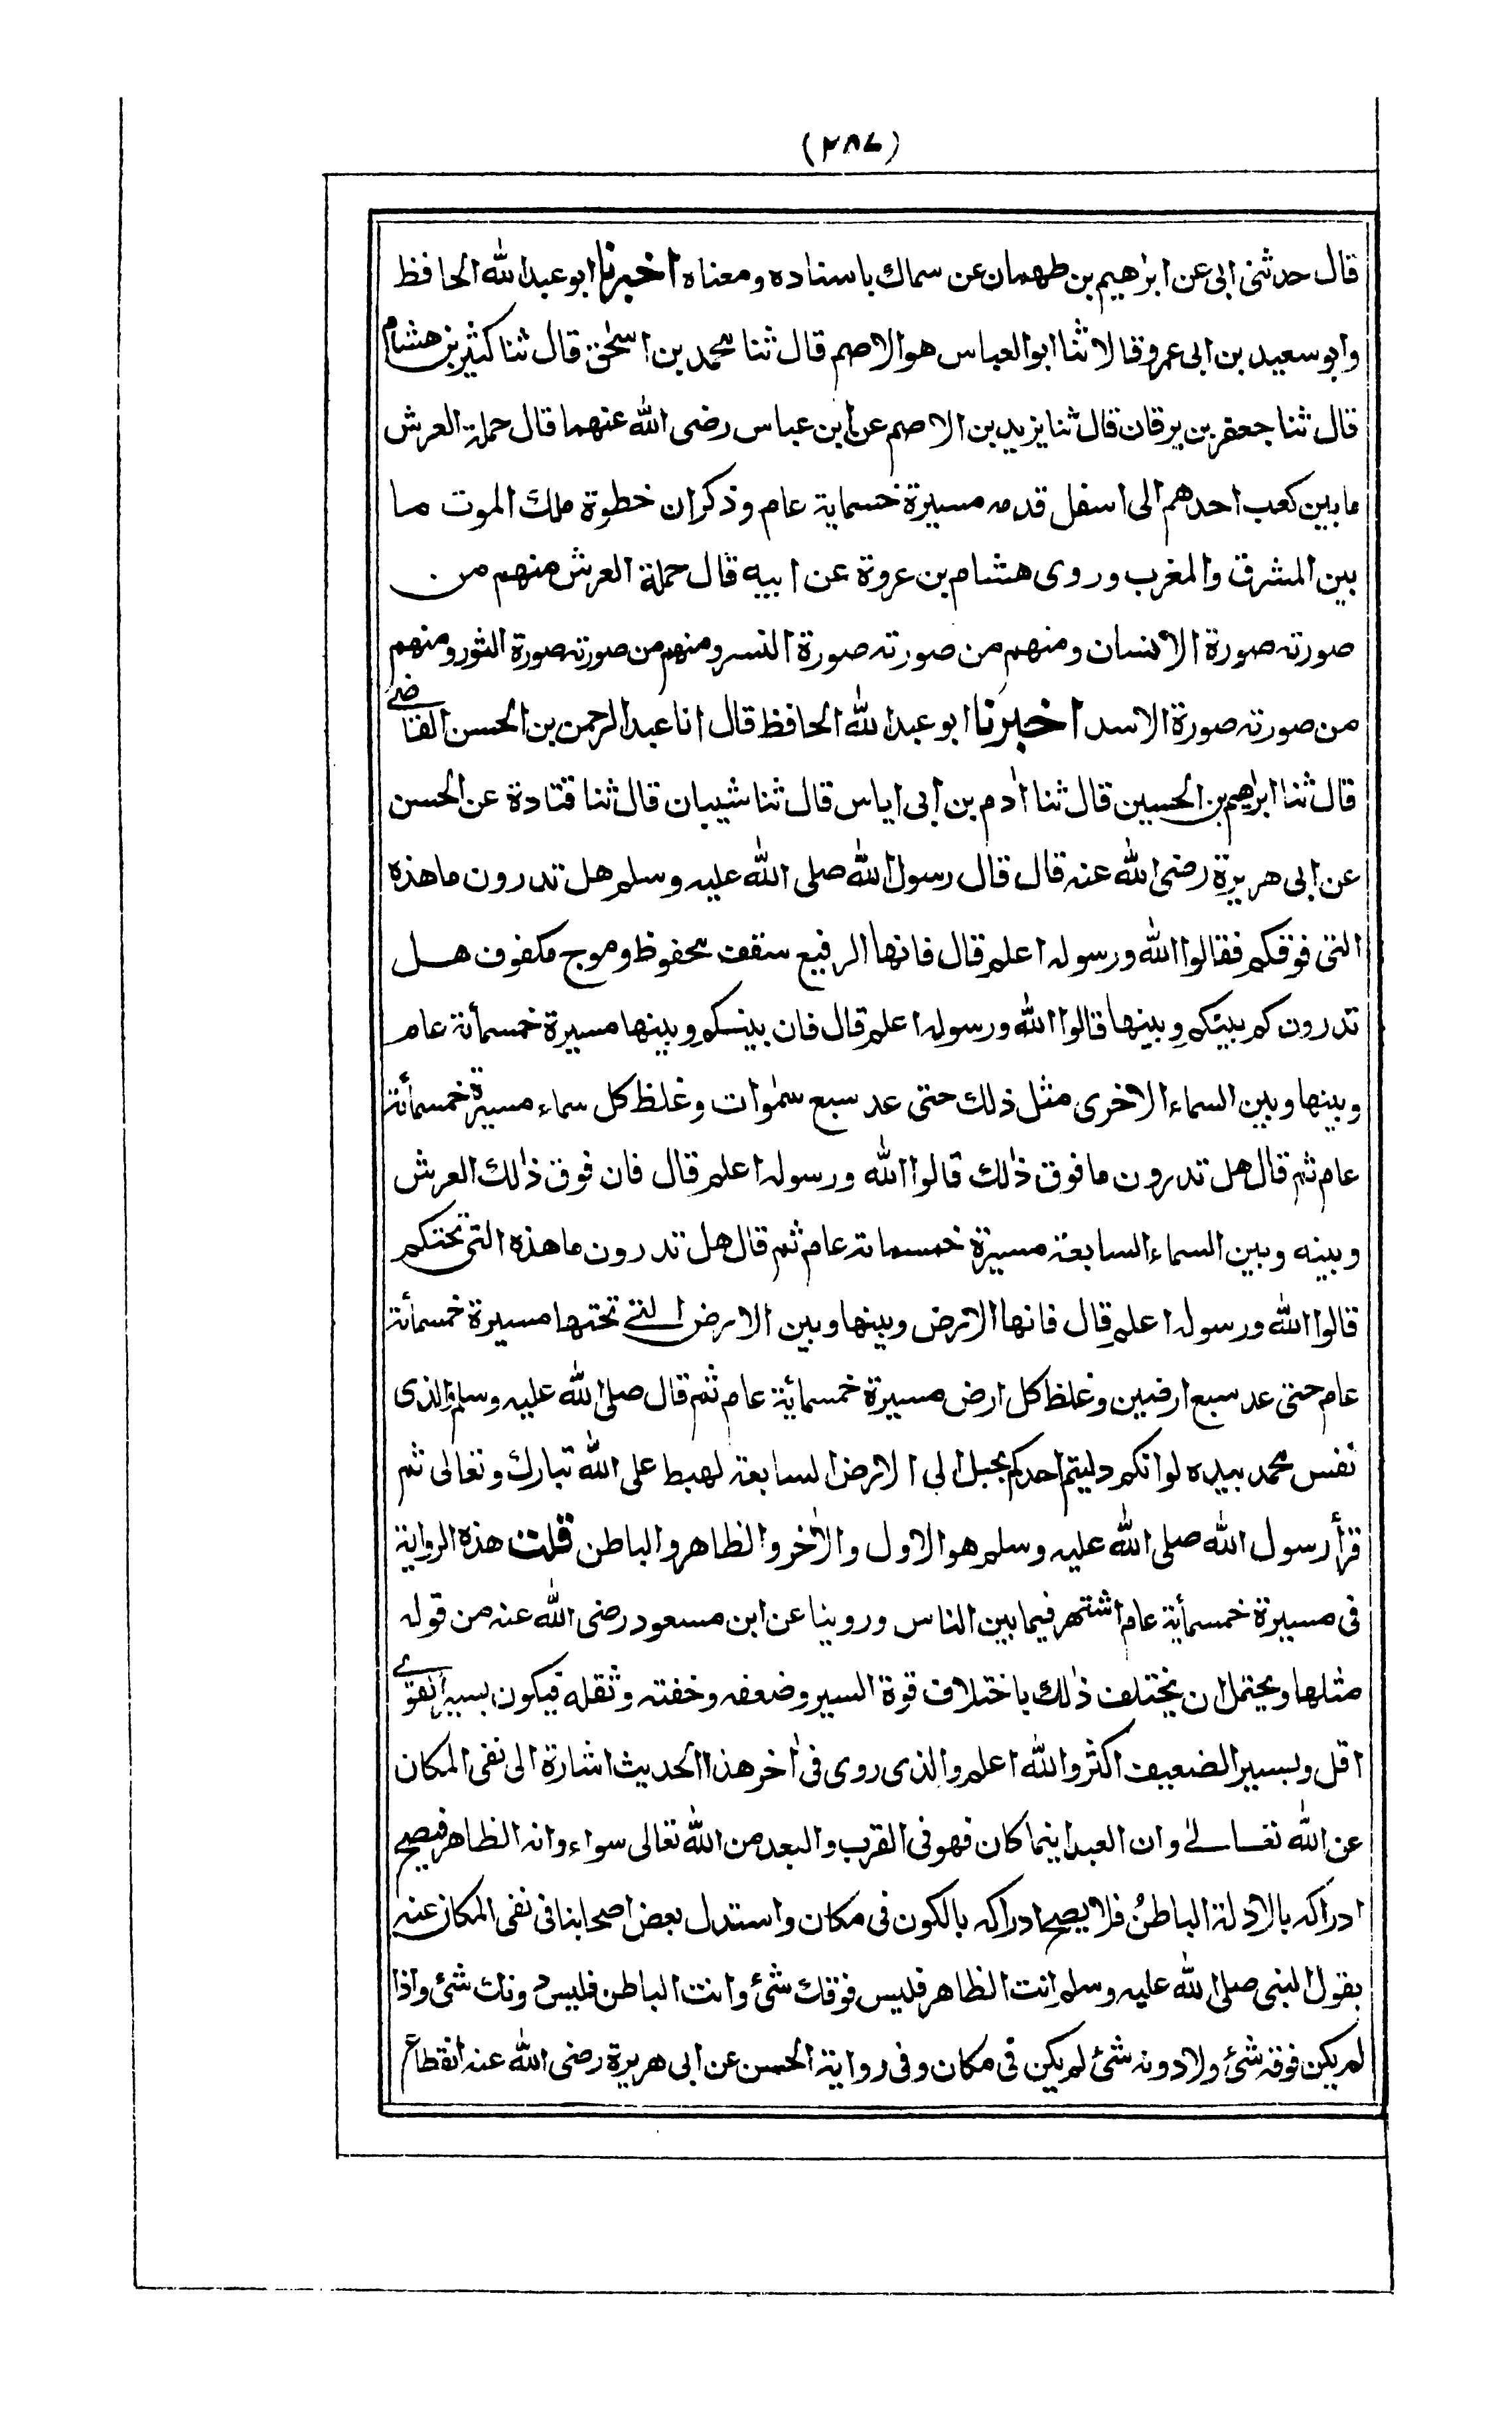 (٢٨٧)
قال حدثنى ابى عن ابراهيم بن طهمان عن سماك باسناده ومعناه اخبرنا ابو عبد الله الحافظ
وابو سعيد بن ابى عمرو قالا ثنا ابو العباس هو الاصم قال ثنا محمد بن اسحٰق قال ثنا كثير بن هشام
قال ثنا جعفر بن برقان قال ثنا يزيد بن الاصم عن ابن عباس رضى الله عنهما قال حملة العرش
ما بين كعب احدهم الى اسفل قدمه مسيرة خمسماية عام وذكر ان خطوة ملك الموت ما
بين المشرق والمغرب وروى هشام بن عروة عن ابيه قال حملة العرش منهم من
صورته صورة الانسان ومنهم من صورته صورة النسر ومنهم من صورته صورة الثور ومنهم
من صورته صورة الاسد اخبرنا ابو عبد الله الحافظ قال انا عبد الرحمن بن الحسن القاضے
قال ثنا ابراهيم بن الحسين قال ثنا اٰدم بن ابى اياس قال ثنا شيبان قال ثنا قتادة عن الحسن
عن ابى هريرة رضى الله عنه قال قال رسول الله صلى الله عليه وسلم هل تدرون ما هذه
التى فوقكم فقالوا الله ورسوله اعلم قال فانها الرفيع سقف محفوظ وموج مكفوف هل
تدرون كم بينكم وبينها قالوا الله ورسوله اعلم قال فان بينكم وبينها مسيرة خمسمأئة عام
وبينها وبين السماء الاخرى مثل ذلك حتى عد سبع سمٰوات وغلظ كل سماء مسيرة خمسمأئة
عام ثم قال هل تدرون ما فوق ذٰلك قالوا الله ورسوله اعلم قال فان فوق ذٰلك العرش
وبينه وبين السماء السابعة مسيرة خمسماىة عام ثم قال هل تدرون ما هذه التى تحتكم
قالوا الله ورسوله اعلم قال فانها الارض وبينها وبين الارض التے تحتها مسيرة خمسمأئة
عام حتى عد سبع ارضين وغلظ كل ارض مسيرة خمسمائة عام ثم قال صلى الله عليه وسلم والذى
نفس محمد بيده لو انكم دليتم احدكم بحبل الى الارض السابعة لهبط على الله تبارك وتعالى ثم
قرأ رسول الله صلى الله عليه وسلم هو الاول والاٰخر والظاهر والباطن قلت هذه الرواية
فى مسيرة خمسمأية عام اشتهر فيما بين الناس وروينا عن ابن مسعود رضى الله عنه من قوله
مثلها ويحتمل ان يختلف ذٰلك باختلاف قوة السير وضعفه وخفته وثقله فيكون بسير القوے
اقل وبسير الضعيف اكثر والله اعلم والذى روى فى اٰخر هذا الحديث اشارة الى نفى المكان
عن الله تعالےٰ وان العبد اينما كان فهو فى القرب والبعد من الله تعالى سواء وانه الظاهر فيصح
ادراكه بالادلة الباطن فلا يصح ادراكه بالكون فى مكان واستدل بعض اصحابنا فى نفى المكان عنه
بقول النبى صلى الله عليه وسلم انت الظاهر فليس فوقك شئ وانت الباطن فليس دونك شئ واذا
لم يكن فوقه شئ ولا دونه شئ لم يكن فى مكان وفى رواية الحسن عن ابى هريرة رضى الله عنه انقطاع